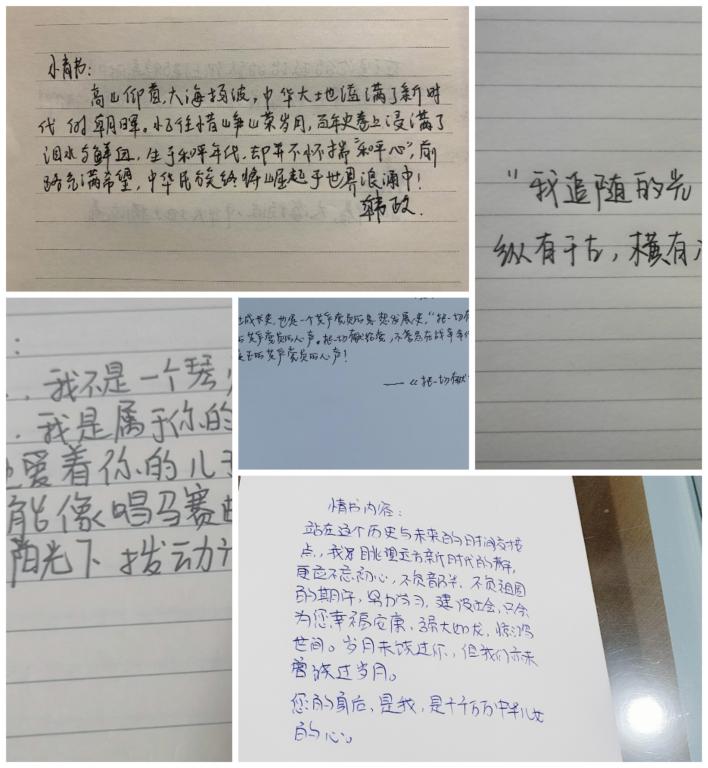 小情书：
高山仰首,大海扬波,中华大地溢满了新时
代的朝晖。忆往惜峥嵘岁月,百年史卷上浸满了
泪水与鲜血,生于和平年代,却并不怀揣"和平心",前
路充满希望,中华民族终将崛起于世界浪涌中!
韩政.
"我追随的光
纵有千古,横有
：
我不是一个琴
我是属于你的
爱着你的儿子
能像唱马赛曲
阳光下 拨动
成长史,也是一个共产党员的思想发展史,"把一切
共产党员的心声。把一切献给党,不管是在战争年代
的共产党员的心声!
——《把一切献
情书内容：
站在这个历史与未来的时间交接
点,我举目眺望远方新时代的
更应不忘初心,不负韶华,不负祖国
的期许,努力学习,建设社会,只余
为您幸福安康,强大如龙,惊鸿
世间。岁月未饶过你,但我们亦未
曾饶过岁月。
您的身后,是我,是千千万万中华儿女
的心。